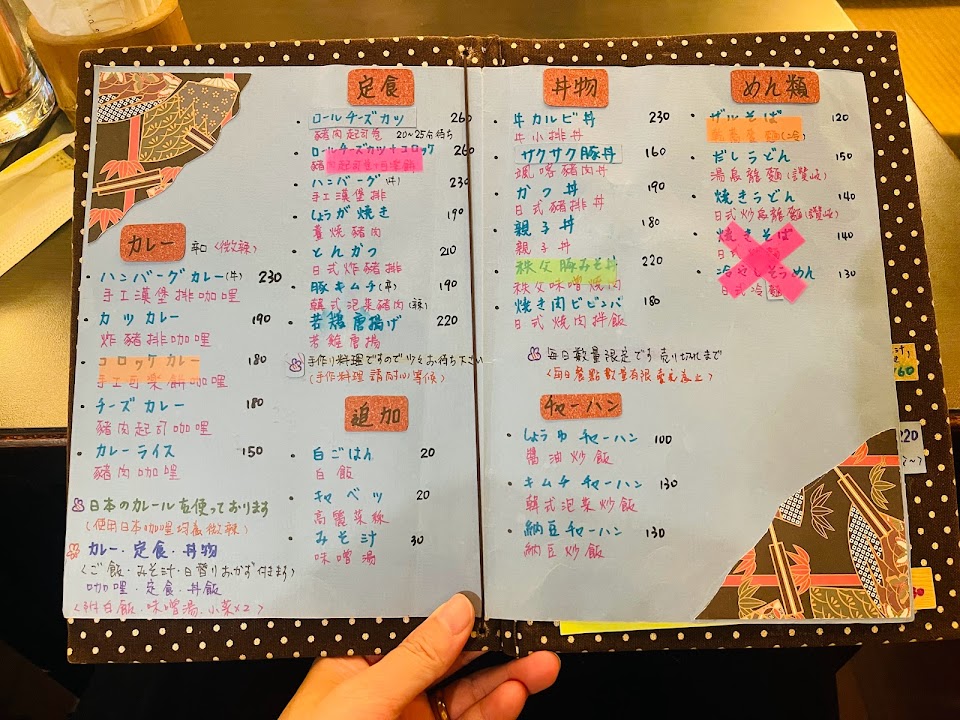 カレー 辛口〈微辣〉
ハンバーグカレー(牛) 230
手工漢堡排咖哩
カツカレー 190
炸豬排咖哩
コロッケカレー 180
手工可樂餅咖哩
チーズカレー 180
豬肉起司咖哩
カレーライス 150
豬肉咖哩
日本のカレールを使っております
(使用日本咖哩均為微辣)
カレー・定食・丼物
〈ご飯・みそ汁・日替りおかず付きます〉
咖哩・定食・丼飯
〈附白飯.味噌湯.小菜x2〉
定食
ロールチーズカツ 260
豬肉起司卷 20~25分待ち
ロールチーズカツ+コロッケ 260
豬
ハンバーグ(牛) 230
手工漢堡排
しょうが焼き 190
薑燒豬肉
とんかつ 210
日式炸豬排
豚キムチ(辛) 190
韓式泡菜豬肉(辣)
若鶏唐揚げ 220
若雞唐揚
手作り料理ですので少々お待ち下さい
(手作料理 請耐心等候)
追加
白ごはん 20
白飯
キャベツ 20
高麗菜絲
みそ汁 30
味噌湯
丼物
牛カルビ丼 230
牛小排丼
ザクサク豚丼 160
颯喀豬肉丼
かつ丼 190
日式豬排丼
親子丼 180
親子丼
秩父豚みそ丼 220
秩父味噌燒肉
焼き肉ビビンバ 180
日式燒肉拌飯
毎日数量限定です 売り切れまで
〈每日餐點數量有限 賣完為止〉
チャーハン
しょうゆチャーハン 100
醬油炒飯
キムチチャーハン 130
韓式泡菜炒飯
納豆チャーハン 130
納豆炒飯
めん類
ザッそば 120
だしうどん 150
湯烏龍麵(讚岐)
焼きうどん 140
日式炒烏龍麵(讚岐)
焼きそば 140
冷やしそうめん 130
日式冷麵